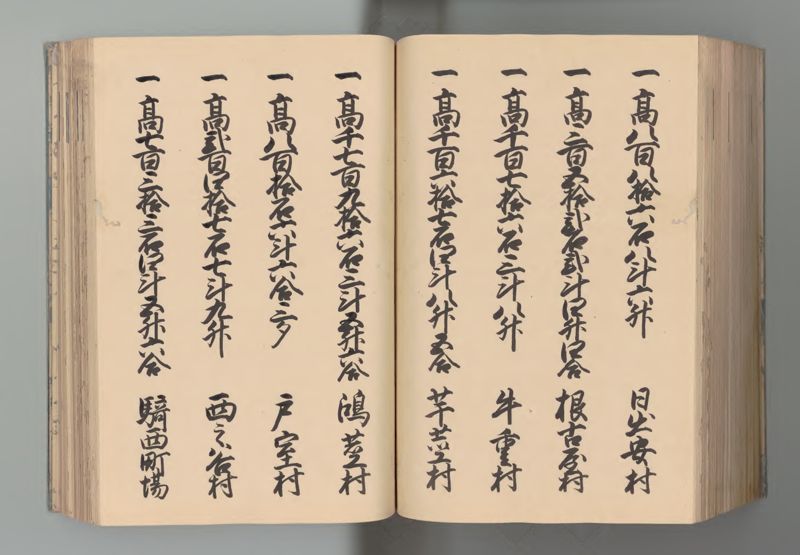 一髙八百八拾六石八斗六升 日出安村
一髙三百五拾弐石弐斗四升四合 根古屋村
一髙千百七拾六石三斗八升 牛重村
一髙千百六拾七石四斗八升五合 芋茎村
一髙千七百九拾六石三斗五升六合 鴻茎村
一髙八百拾石六斗六合三夕 戸室村
一髙弐百四拾七石七斗九升 西之谷村
一髙七百三拾三石四斗五升六合 騎西町場